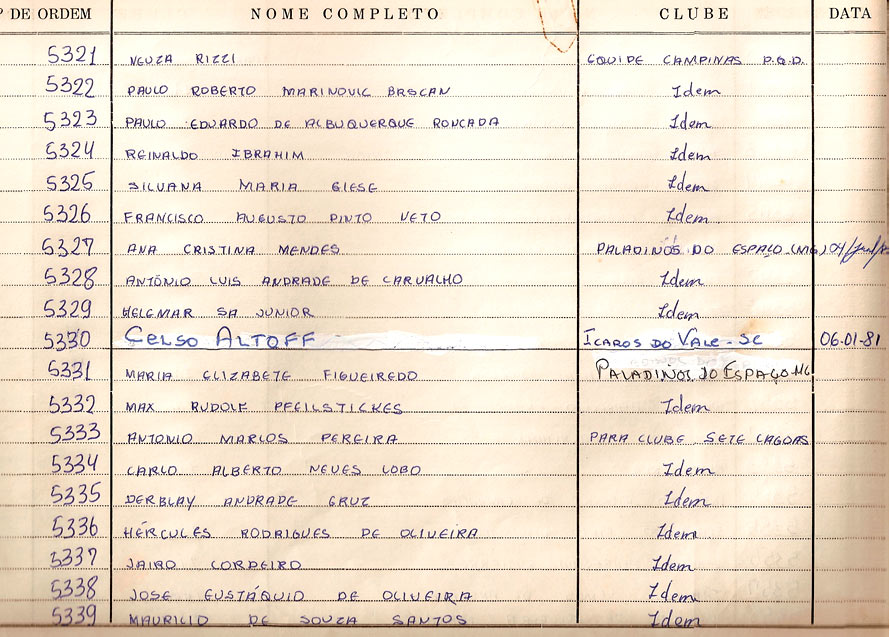 º DE ORDEM NOME COMPLETO CLUBE DATA
5321 NEUZA RIZZI EQUIPE CAMPINAS P.Q.D.
5322 PAULO ROBERTO MARINOVIC BRSCAN Idem
5323 PAULO EDUARDO DE ALBUQUERQUE RONCADA Idem
5324 REINALDO IBRAHIM Idem
5325 SILVANA MARIA GIESE Idem
5326 FRANCISCO AUGUSTO PINTO NETO Idem
5327 ANA CRISTINA MENDES PALADINOS DO ESPAÇO (MG)
5328 ANTÔNIO LUIS ANDRADE DE CARVALHO Idem
5329 HELEMAR SA JUNIOR Idem
5330 CELSO ALTOFF ICAROS DO VALE - SC 06-01-81
5331 MARIA ELIZABETE FIGUEIREDO PALADINOS DO ESPAÇO MG
5332 MAX RUDOLF PFEILSTICKES Idem
5333 ANTONIO MARLOS PEREIRA PARA CLUBE SETE LAGOAS
5334 CARLO ALBERTO NEVES LOBO Idem
5335 DERBLAY ANDRADE GRUZ Idem
5336 HÉRCULES RODRIGUES DE OLIVEIRA Idem
5337 JAIRO CORDEIRO Idem
5338 JOSE EUSTÁQUIO DE OLIVEIRA Idem
5339 MAURILIO DE SOUZA SANTOS Idem